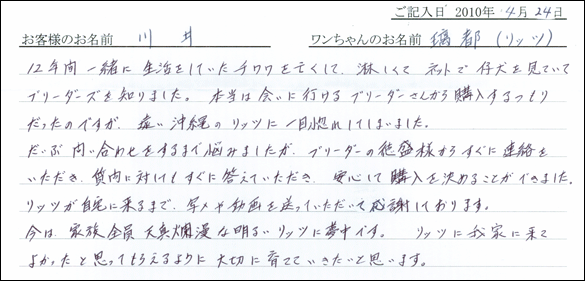 ご記入日 2010年 4月 24日
お客様のお名前 川井 ワンちゃんのお名前 璃都(リッツ)
12年間一緒に生活をしていたチワワを亡くして、淋しくてネットで仔犬を見ていて
ブリーダーズを知りました。本当は会いに行けるブリーダーさんから購入するつもり
だったのですが、遠い沖縄のリッツに一目惚れしてしまいました。
だいぶ問い合わせをするまで悩みましたが、ブリーダーの徳盛様からすぐに連絡を
いただき、質問に対してもすぐに答えていただき、安心して購入を決めることができました。
リッツが自宅に来るまで、写メや動画を送っていただいて感謝しております。
今は、家族全員天真爛漫な明るいリッツに夢中です。 リッツに我家に来て
よかったと思ってもらえるように大切に育てていきたいと思います。